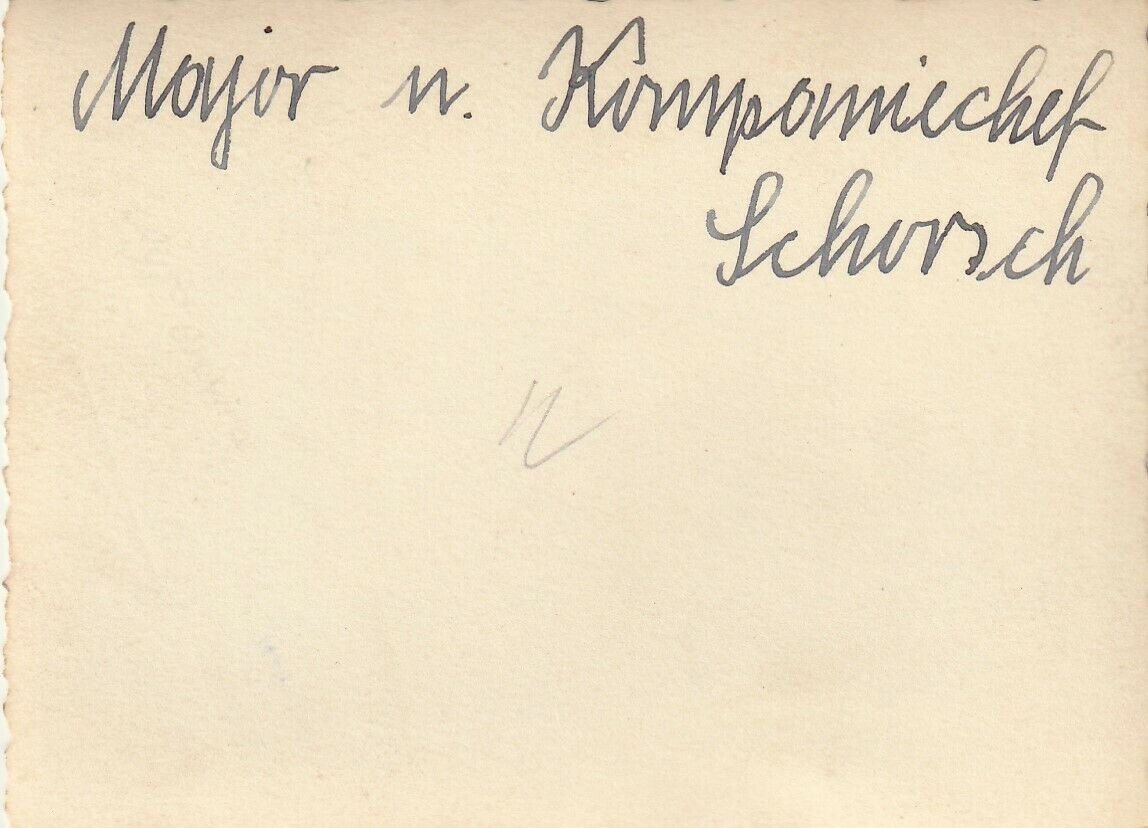 Major u. Kompaniechef
Schorsch